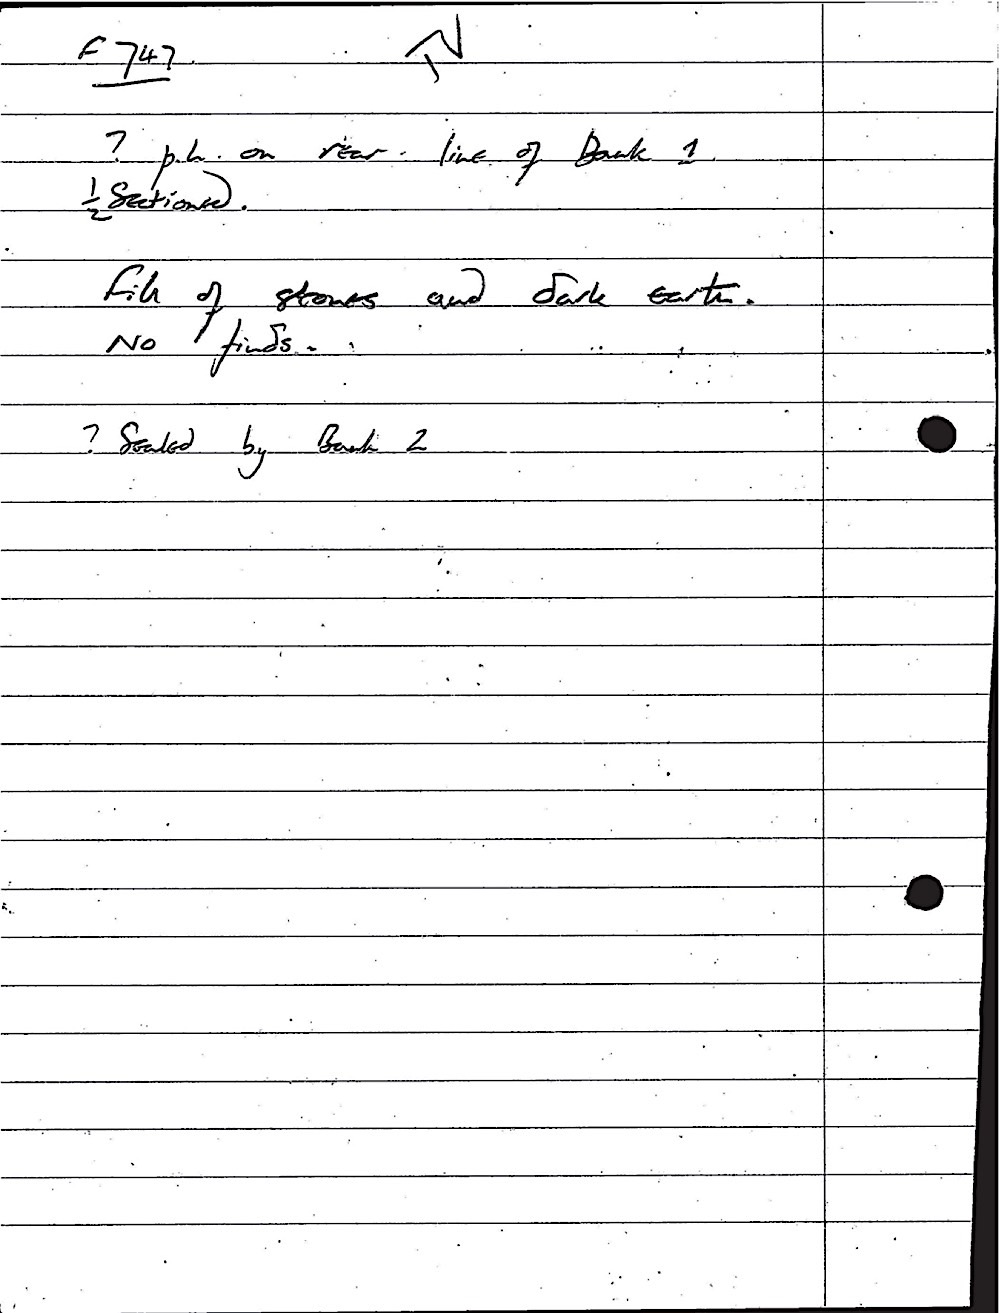 F 747
? p.h. on rear line of Bank 1
½ Sectioned.
Fill of stones and dark earth.
No finds.
? Sealed by Bank 2